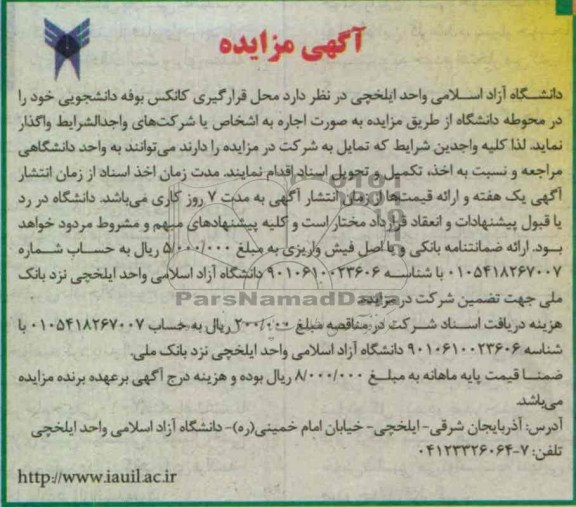 آگهی مزایده
دانشگاه آزاد اسلامی واحد ایلخچی در نظر دارد محل قرارگیری کانکس بوفه دانشجویی خود را
در محوطه دانشگاه از طریق مزایده به صورت اجاره به اشخاص یا شرکت‌های واجدالشرایط واگذار
نماید. لذا کلیه واجدین شرایط که تمایل به شرکت در مزایده را دارند می‌توانند به واحد دانشگاهی
مراجعه و نسبت به اخذ، تکمیل و تحویل اسناد اقدام نمایند. مدت زمان اخذ اسناد از زمان انتشار
آگهی یک هفته و ارائه قیمت‌ها از زمان انتشار آگهی به مدت ۷ روز کاری می‌باشد. دانشگاه در رد
یا قبول پیشنهادات و انعقاد قرارداد مختار است و کلیه پیشنهادهای مبهم و مشروط مردود خواهد
بود. ارائه ضمانتنامه بانکی و یا اصل فیش واریزی به مبلغ ۵/۰۰۰/۰۰۰ ریال به حساب شماره
۰۱۰۵۴۱۸۲۶۷۰۰۷ با شناسه ۹۰۱۰۶۱۰۰۲۳۶۰۶ دانشگاه آزاد اسلامی واحد ایلخچی نزد بانک
ملی جهت تضمین شرکت در مزایده.
هزینه دریافت اسناد شرکت در مناقصه مبلغ ۲۰۰/۰۰۰ ریال به حساب ۰۱۰۵۴۱۸۲۶۷۰۰۷ با
شناسه ۹۰۱۰۶۱۰۰۲۳۶۰۶ دانشگاه آزاد اسلامی واحد ایلخچی نزد بانک ملی.
ضمنا قیمت پایه ماهانه به مبلغ ۸/۰۰۰/۰۰۰ ریال بوده و هزینه درج آگهی برعهده برنده مزایده
می‌باشد.
آدرس: آذربایجان شرقی- ایلخچی- خیابان امام خمینی(ره)- دانشگاه آزاد اسلامی واحد ایلخچی
تلفن: ۷-۰۴۱۲۳۳۲۶۰۶۴
http://www.iauil.ac.ir
ParsNamadData